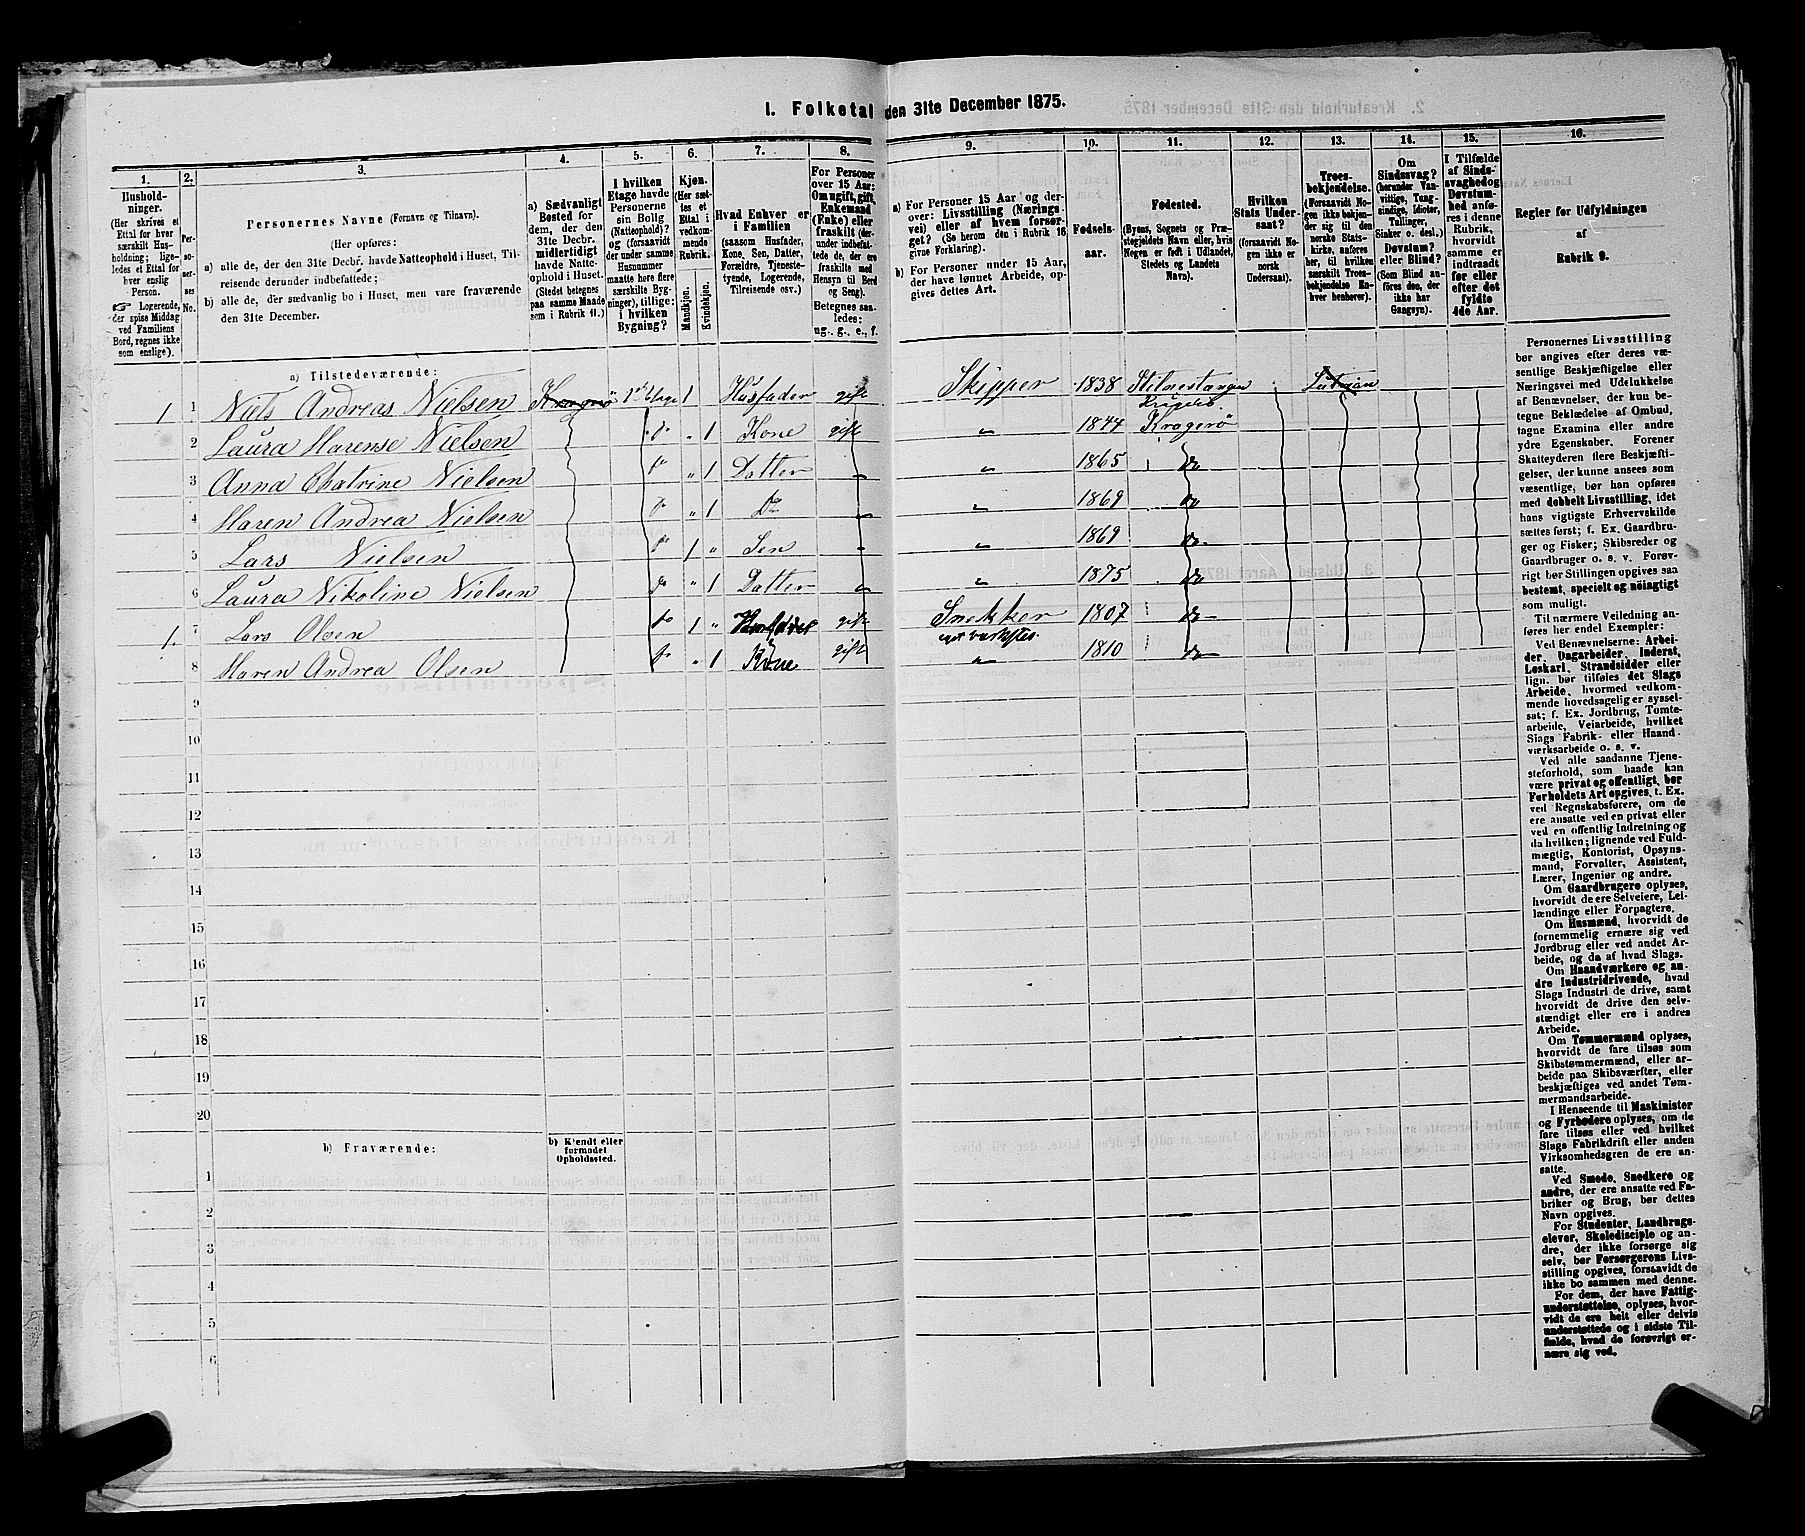 I. Folketal den 31te December 1875.
1.
Hushold-
ninger.
(Her skrives et
Ettal for hver
særskilt Hus-
holdning; lige-
ledes et Ettal for
hver enslig
Person.
Logerende,
der spise Middag
ved Familiens
Bord, regnes ikke
som enslige).
2.
Per-
so-
ner-
nes
No.
3.
Personernes Navne (Fornavn og Tilnavn).
(Her opføres:
a) alle de, der den 31te Decbr. havde Natteophold i Huset, Til-
reisende derunder indbefattede;
b) alle de, der sædvanlig bo i Huset, men vare fraværende
den 31te December.
4.
a) Sædvanligt
Bosted for
dem, der den
31te Decbr.
midlertidigt
havde Natte-
ophold i Huset.
(Stedet betegnes
paa samme Maade
som i Rubrik 11.)
5.
I hvilken
Etage havde
Personerne
sin Bolig
(Natteophold)?
og (forsaavidt
der under samme
Husnummer
maatte høre flere
særskilte Byg-
ninger), tillige:
i hvilken
Bygning?
6.
Kjøn.
(Her sæt-
tes et
Ettal i
vedkom-
mende
Rubrik.
Mandkjøn.
Kvindekjøn.
7.
Hvad Enhver er
i Familien
(saasom Husfader,
Kone, Søn, Datter,
Forældre, Tjeneste-
tyende, Logerende,
Tilreisende osv.)
8.
For Personer
over 15 Aar:
Om ugift, gift,
Enkemand
(Enke) eller
fraskilt (der-
under indbefat-
tede de, der ere
fraskilte med
Hensyn til Bord
og Seng).
Betegnes saa-
ledes:
ug., g., e., f.
9.
a) For Personer 15 Aar og der-
over: Livsstilling (Nærings-
vei) eller af hvem forsør-
get? (Se herom den i Rubrik 16
givne Forklaring).
b) For Personer under 15 Aar,
der have lønnet Arbeide, op-
gives dettes Art.
10.
Fødsels-
aar.
11.
Fødested.
(Byens, Sognets og Præ-
stegjeldets Navn eller, hvis
Nogen er født i Udlandet,
Stedets og Landets
Navn).
12.
Hvilken
Stats Under-
saat?
(forsaavidt No-
gen ikke er
norsk
Undersaat).
13.
Troes-
bekjendelse.
(Forsaavidt No-
gen ikke bekjen-
der sig til den
norske Stats-
kirke, anføres
her, til hvilken
særskilt Troes-
bekjendelse En-
hver henhører).
14.
Om
Sindssvag?
(herunder Van-
vittige, Tung-
sindige, Idioter,
Tullinger,
Sinker o. desl.)
Døvstum?
eller Blind?
(Som Blind an-
føres den, der
ikke har
Gangsyn).
15.
I Tilfælde
af Sinds-
svaghed og
Døvstum-
hed anfø-
res i denne
Rubrik,
hvorvidt
samme er
indtraadt
før eller
efter det
fyldte
4de Aar.
16.
Regler for Udfyldningen
af
Rubrik 9.
a) Tilstedeværende:
1 1 Niels Andreas Nielsen Kragerø Etage 1 Husfader gift Skipper 1838 Lutrian
2 Laura Marense Nielsen do „ 1 Kone gift „ 1844 Kragerø
3 Anna Chatrine Nielsen do „ 1 Datter „ 1865 do
4 Maren Andrea Nielsen do „ 1 Do „ 1869 do
5 Lars Nielsen do 1 „ Søn „ 1869 do
6 Laura Nikoline Nielsen do „ 1 Datter „ 1875 do
1. 7 Lars Olsen do 1 „ gift Snekker 1807 do
8 Maren Andrea Olsen do „ 1 Kone gift „ 1810 do
9
10
11
12
13
14
15
16
17
18
19
20
b) Fraværende:
b) Kjendt eller
formodet
Opholdssted.
1
2
3
4
5
6
Personernes Livsstilling
bør angives efter deres væ-
sentlige Beskjæftigelse eller
Næringsvei med Udelukkelse
af Benævnelser, der kun be-
tegne Beklædelse af Ombud,
tagne Examina eller andre
ydre Egenskaber. Forener
Skatteyderen flere Beskjæfti-
gelser, der kunne ansees som
væsentlige, bør han opføres
med dobbelt Livsstilling, idet
hans vigtigste Erhvervskilde
sættes først; f. Ex. Gaardbru-
ger og Fisker; Skibsreder og
Gaardbruger o. s. v. Forøv-
rigt bør Stillingen opgives saa
bestemt, specielt og nøiagtigt
som muligt.
Til nærmere Veiledning an-
føres her endel Exempler:
Ved Benævnelserne: Arbei-
der, Dagarbeider, Inderst,
Løskarl, Strandsidder eller
lign. bør tilføies det Slags
Arbeide, hvormed vedkom-
mende hovedsagelig er syssel-
sat; f. Ex. Jordbrug, Tomte-
arbeide, Veiarbeide, hvilket
Slags Fabrik- eller Haand-
værksarbeide o. s. v.
Ved alle saadanne Tjene-
steforhold, som baade kan
være privat og offentligt, bør
Forholdets Art opgives, t. Ex.
ved Regnskabsførere, om de
ere ansatte ved en privat eller
ved en offentlig Indretning og
da hvilken; lignende ved Fuld-
mægtig, Kontorist, Opsyns-
mand, Forvalter, Assistent,
Lærer, Ingeniør og andre.
Om Gaardbrugere oplyses,
hvorvidt de ere Selveiere, Lei-
lændinge eller Forpagtere.
Om Husmænd, hvorvidt de
fornemmelig ernære sig ved
Jordbrug eller ved andet Ar-
beide, og da af hvad Slags.
Om Haandværkere og an-
dre Industridrivende, hvad
Slags Industri de drive, samt
hvorvidt de drive den selv-
stændigt eller ere i andres
Arbeide.
Om Tømmermænd oplyses,
hvorvidt de fare tilsøs som
Skibstømmermænd, eller ar-
beide paa Skibsværfter, eller
beskjæftiges ved andet Tøm-
mermandsarbeide.
I Henseende til Maskinister
og Fyrbødere oplyses, om de
fare tilsøs eller ved hvilket
Slags Fabrikdrift eller anden
Virksomhedsgren de ere an-
satte.
Ved Smede, Snedkere og
andre, der ere ansatte ved Fa-
briker og Brug, bør dettes
Navn opgives.
For Studenter, Landbrugs-
elever, Skoledisciple og an-
dre, der ikke forsørge sig
selv, bør Forsørgerens Livs-
stilling opgives, forsaavidt de
ikke bo sammen med denne.
For dem, der have Fattig-
understøttelse, oplyses, hvor-
vidt de ere helt eller delvis
understøttede og i sidste Til-
fælde, hvad de forøvrigt er-
nære sig ved.